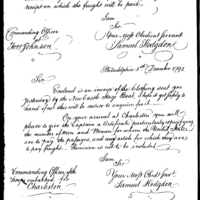 receipt on which the freight will be paid.
I am
Sir
Commanding Officer
at
Fort Johnson
Your Most Obedient Servant
Samuel Hodgdon
Philadelphia 1st December 1792
Sir
Enclosed is an invoice of the Cloathing sent you
yesterday by the
hand on this will be
On your arrival at Charleston you will
please to give the Captain a Certificate particularly specifying
the number of Men and Women for whom the United States
are to pay the passages, and any article for which they are
to pay freight. However is not to be included
I am
Sir
Commanding Officer of the
Troops embarked for
Charleston
Your Most Obedt Servt
Samuel Hodgdon